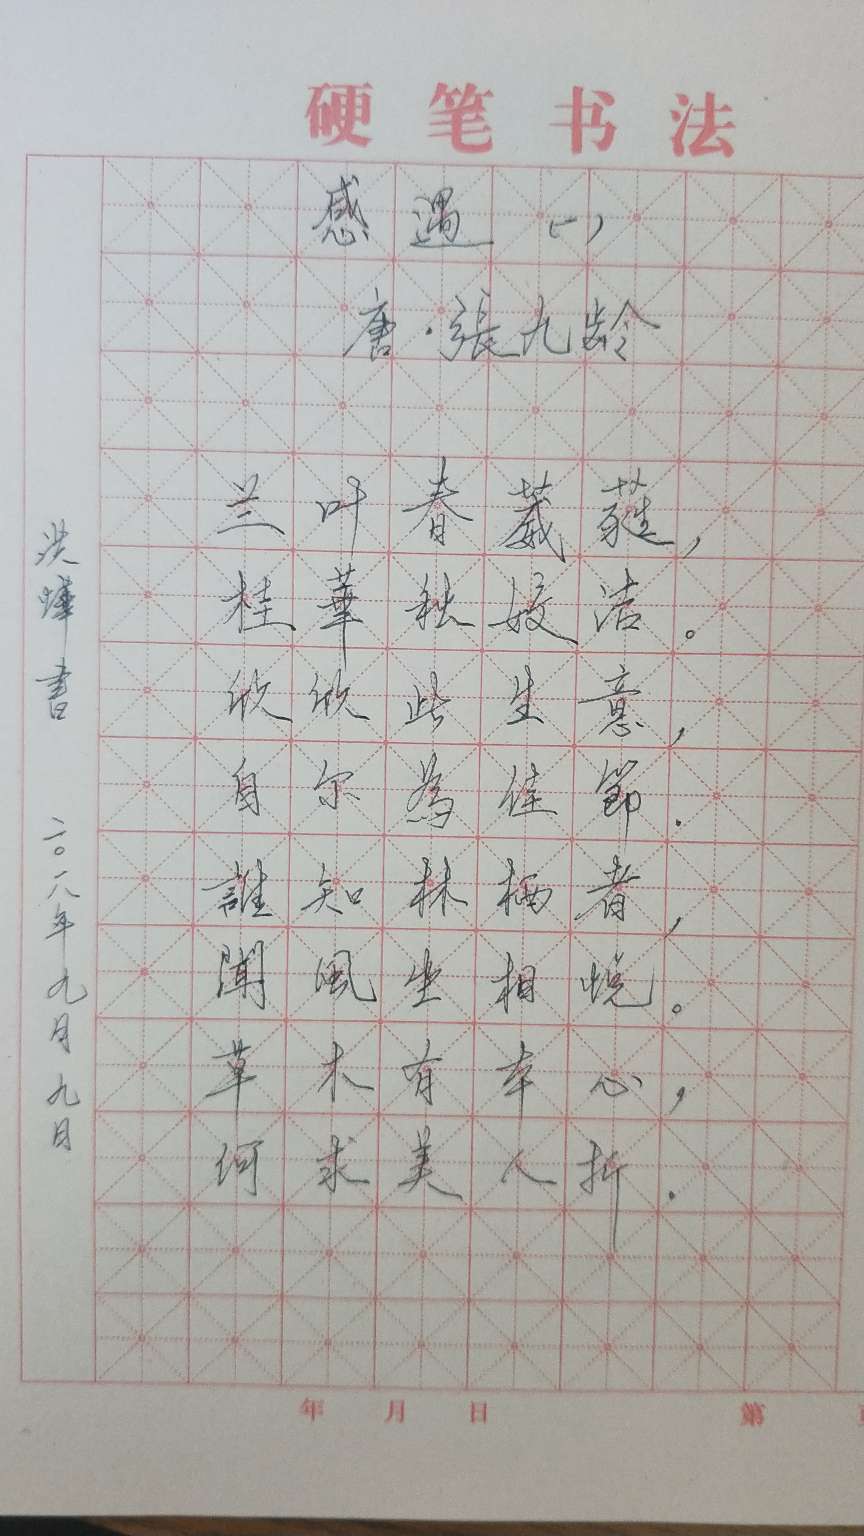 硬笔书法
感遇(一)
唐·張九龄
兰叶春葳蕤，
桂華秋姣洁。
欣欣此生意，
自尔為佳節.
誰知林栖者，
闻風坐相悦。
草木有本心，
何求美人折.
洪 書 二〇一八年九月九日
年 月 日 第